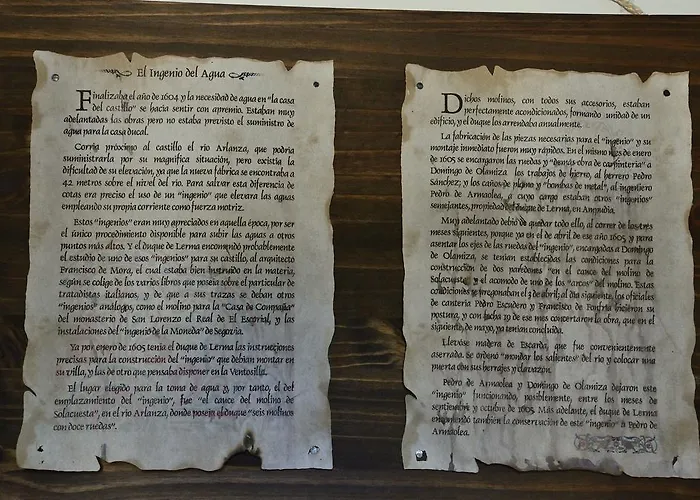 El Ingenio del Agua
Finalizaba el año de 1604 y la necesidad de agua en "la casa
del castillo" se hacía sentir con apremio. Estaban muy
adelantadas las obras pero no estaba previsto el suministro de
agua para la casa ducal.
Corría próximo al castillo el río Arlanza, que podría
suministrarla por su magnífica situación, pero existía la
dificultad de su elevación, ya que la nueva fábrica se encontraba a
42 metros sobre el nivel del río. Para salvar esta diferencia de
cotas era preciso el uso de un "ingenio" que elevara las aguas
empleando su propia corriente como fuerza motriz.
Estos "ingenios" eran muy apreciados en aquella época, por ser
el único procedimiento disponible para subir las aguas a otros
puntos más altos. Y el duque de Lerma encomendó probablemente
el estudio de uno de esos "ingenios" para su castillo, al arquitecto
Francisco de Mora, el cual estaba bien instruido en la materia,
según se colige de los varios libros que poseía sobre el particular de
tratadistas italianos, y de que a sus trazas se deban otros
"ingenios" análogos, como el molino para la "Casa de Compaña"
del monasterio de San Lorenzo el Real de El Escorial, y las
instalaciones del "ingenio de la Moneda" de Segovia.
Ya por enero de 1605 tenía el duque de Lerma las instrucciones
precisas para la construcción del "ingenio" que debían montar en
su villa, y las de otro que pensaba disponer en la Ventosilla.
El lugar elegido para la toma de agua y, por tanto, el del
emplazamiento del "ingenio", fue "el cauce del molino de
Solacuesta", en el río Arlanza, donde poseía el duque "seis molinos
con doce ruedas".
Dichos molinos, con todos sus accesorios, estaban
perfectamente acondicionados, formando unidad de un
edificio, y el duque los arrendaba anualmente.
La fabricación de las piezas necesarias para el "ingenio" y su
montaje inmediato fueron muy rápidos. En el mismo mes de enero
de 1605 se encargaron las ruedas y "demás obra de carpintería" a
Domingo de Olamiza los trabajos de hierro, al herrero Pedro
Sánchez; y los caños de plomo y "bombas de metal", al ingeniero
Pedro de Armaolea, a cuyo cargo estaban otros "ingenios"
semejantes, propiedad del duque de Lerma, en Ampudia.
Muy adelantado debió de quedar todo ello, al correr de los tres
meses siguientes, porque ya en el de abril de ese año 1605 y para
asentar los ejes de las ruedas del "ingenio", encargadas a Domingo
de Olamiza, se tenían establecidas las condiciones para la
construcción de dos paredones "en el cauce del molino de
Solacuesta" y el acomodo de uno de los "arcos" del molino. Estas
condiciones se pregonaban el 3 de abril; al día siguiente, los oficiales
de cantería Pedro Escudero y Francisco de hicieron su
postura, y con fecha 29 de ese mes concertaron la obra, que en el
siguiente, de mayo, ya tenían concluida.
Llevóse madera de Escarda, que fue convenientemente
aserrada. Se ordenó "mondar los salientes" del río y colocar una
puerta con sus herrajes y clavazón.
Pedro de Armaolea y Domingo de Olamiza dejaron este
"ingenio" funcionando, posiblemente, entre los meses de
septiembre y octubre de 1605. Más adelante, el duque de Lerma
encomendó también la conservación de este "ingenio" a Pedro de
Armaolea.